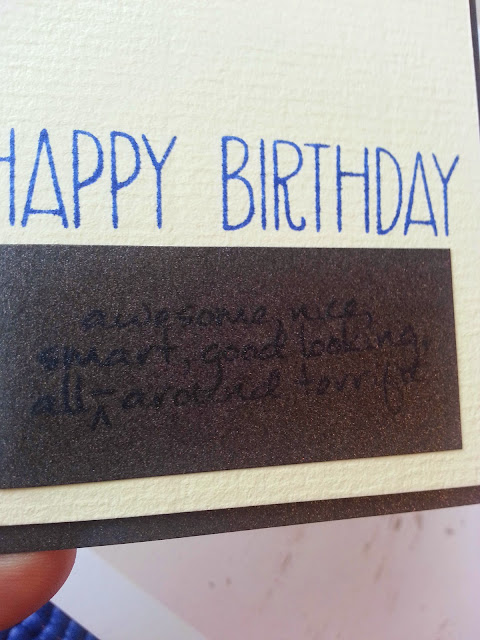 HAPPY BIRTHDAY
awesome, nice,
smart, good looking,
all-around terrific